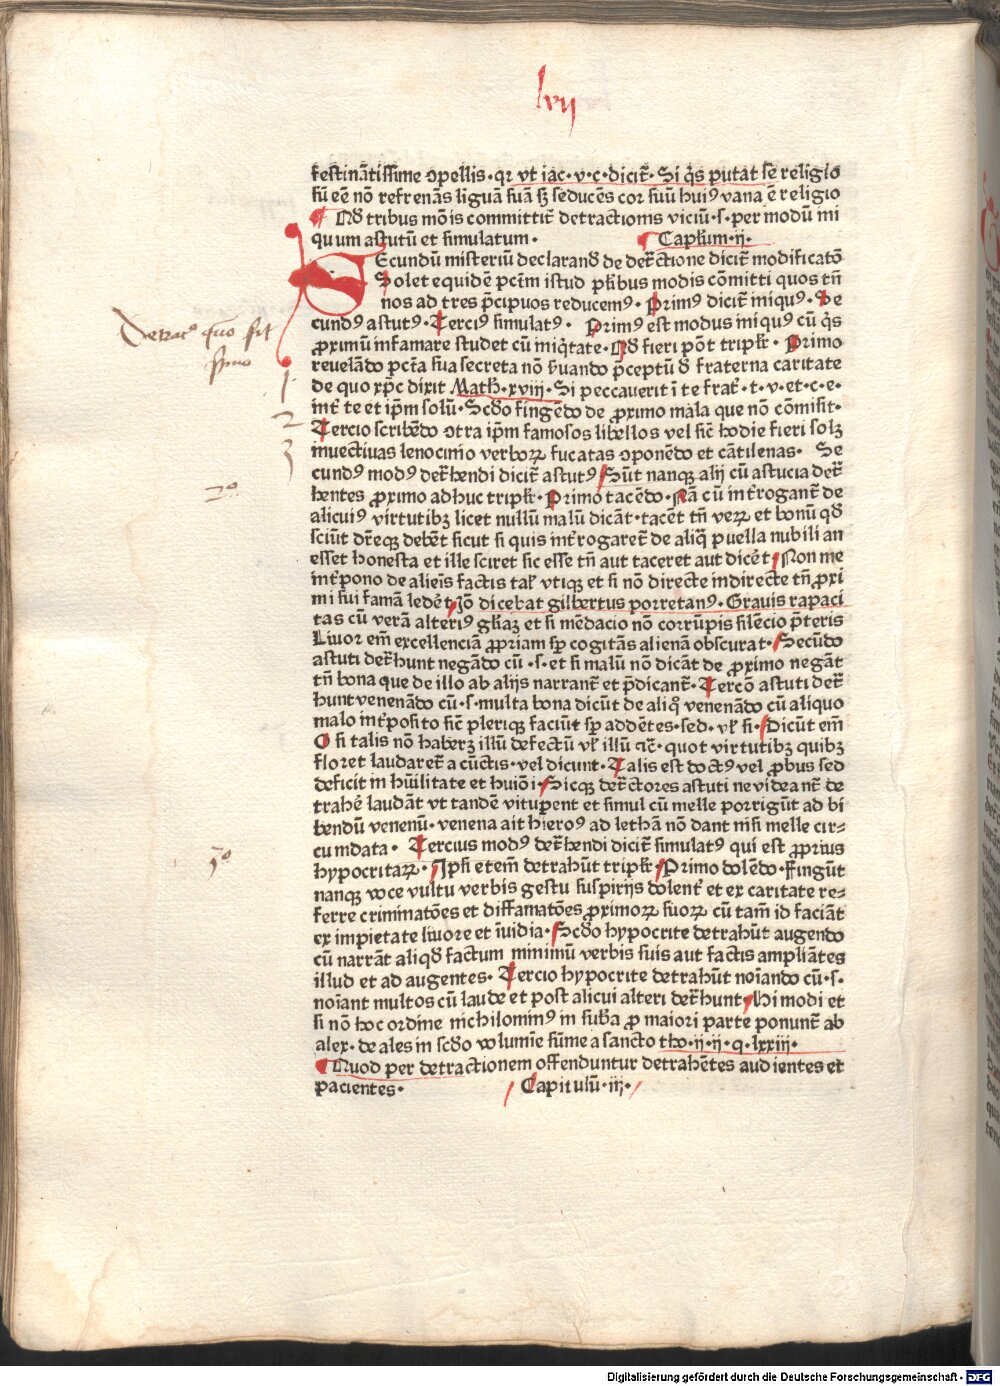 lvij
festinātissime ↄpellis·qꝛ vt iac·v·c·dicit᷑·Si q̄s putat se᷑ religio
sū eē nō refrenās liguā suā sꝫ seducēs cor suū huiꝰ vana ē religio
Qđ tribus mōis committit᷑ detractionis viciū·s·per modū ini
quum astutū et simulatum·
Capłum·ij·
SEcundū misteriū declarand̄ de det᷑ctione dicit᷑ modificatō
Solet equidē pctm istud pl̄ibus modis cōmitti quos tn̄
nos ad tres p̄cipuos reducemꝰ·Primꝰ dicit᷑ iniquꝰ·Se
cundꝰ astutꝰ·Terciꝰ simulatꝰ· Primꝰ est modus iniquꝰ cū q̄s
ꝓximū infamare studet cū iniq̄tate·Qđ fieri pōt triplr̄·Primo
reuelādo pctā sua secreta nō s̄uando p̄ceptū đ fraterna caritate
de quo xp̄c dixit Math·xviij·Si peccauerit ī te frat᷑·t·v·et·c·e·
int᷑ te et ip̄m solū·Scđo fingēdo de ꝓximo mala que nō cōmisit·
Tercio scribēdo ↄtra ip̄m famosos libellos vel sic̄ hodie fieri solꝫ
inuectiuas lenocinio verboꝝ fucatas ↄponēdo et cātilenas· Se
cundꝰ modꝰ det᷑hendi dicit᷑ astutꝰ Sūt nanqꝫ alij cū astucia det᷑
hentes ꝓximo adhuc triplr̄·Primo tacēdo·Nā cū int᷑rogant᷑ de
alicuiꝰ virtutibꝫ licet nullū malū dicāt·tacēt tn̄ veꝝ et bonū qđ
sciūt dr̄eqꝫ debēt sicut si quis int᷑rogaret᷑ de aliq̄ puella nubili an
esset honesta et ille sciret sic esse tn̄ aut taceret aut dicēt Non me
int᷑pono de alieīs factis tal̄ vtiqꝫ et si nō directe indirecte tn̄ ꝓxi
mi sui famā ledēt Jō dicebat gilbertus porretanꝰ·Grauis rapaci
tas cū verā alteriꝰ gl̄iaꝫ et si mēdacio nō corrūpis silēcio p̄teris
Liuor em̄ excellenciā ꝓpriam sp̄ cogitās alienā obscurat·Secūdo
astuti det᷑hunt negādo cū·s·et si malū nō dicāt de ꝓximo negāt
tn̄ bona que de illo ab alijs narrant᷑ et p̄dicant᷑·Tercō astuti det᷑
hunt venenādo cū·s·multa bona dicūt de aliq̄ venenādo cū aliquo
malo int᷑posito sic̄ pleriqꝫ faciūt sp̄ addētes·sed·vl̄ si·Dicūt em̄
O si talis nō haberꝫ illū defectū vl̄ illū ⁊c̄·quot virtutibꝫ quibꝫ
floret laudaret᷑ a cūctis·vel dicunt·Talis est doctꝰ vel ꝓbus sed
deficit in hūilitate et huiōi·Sicqꝫ det᷑ctores astuti ne videant᷑ de
trahē laudāt vt tandē vituꝑent et simul cū melle porrigūt ad bi
bendū venenū·venena ait hieroꝰ ad lethā nō dant nisi melle cir⸗
cumdata· Tercius modꝰ det᷑hendi dicit᷑ simulatꝰ qui est ꝓprius
hypocritaꝝ·Jpsi etem̄ detrahūt triplr̄·Primo dolēdo·Fingūt
nanqꝫ voce vultu verbis gestu suspirijs dolent᷑ et ex caritate re⸗
ferre criminatōes et diffamatōes ꝓximoꝝ suoꝝ cū tam̄ id faciāt
ex impietate liuore et īuidia·Scđo hypocrite detrahūt augendo
cū narrāt aliqđ factum minimū verbis suis aut factis ampliātes
illud et ad augentes·Tercio hypocrite detrahūt noīando cū·s·
noīant multos cū laude et post alicui alteri det᷑hunt Hi modi et
si nō hoc ordine nichilominꝰ in sub̄a ꝓ maiori parte ponunt᷑ ab
alex·de ales in scđo volumīe sūme a sancto tho·ij·ij·q·lxxiij·
Quod per detractionem offenduntur detrahētes audientes et
pacientes·
Capitulū·iij·
Detrac° quo sit
1
2
3
2°
3°
Digitalisierung gefördert durch die Deutsche Forschungsgemeinschaft - DFG